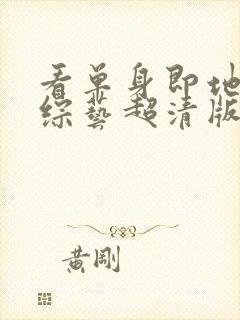 看单身即地
综藝超清版
黄刚